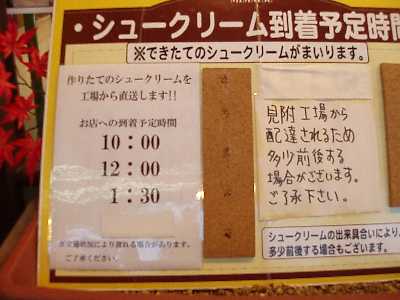 ・シュークリーム到着予定時間
※できたてのシュークリームがまいります。
作りたてのシュークリームを
工場から直送します!!
お店への到着予定時間
10：00
12：00
1：30
※交通状況により遅れる場合があります。
ご了承ください。
見附工場から
配達されるため
多少前後する
場合がございます。
ご了承下さい。
シュークリームの出来具合いにより、
多少前後する場合もございます。